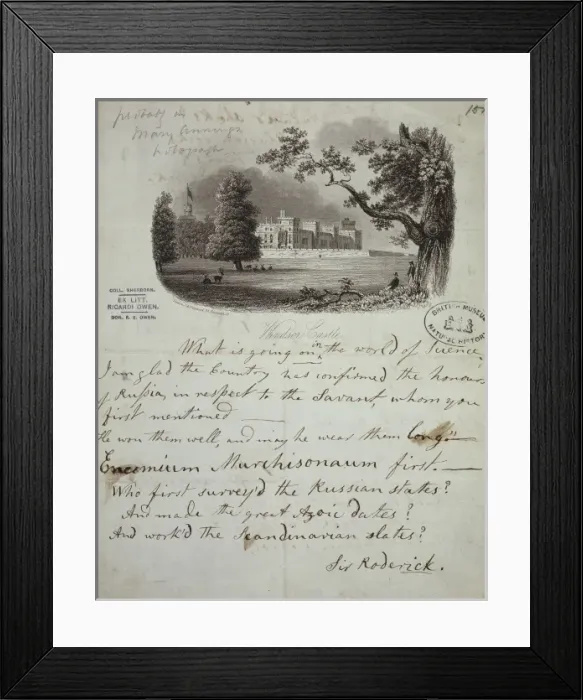 180
probably is
Mary Annings
holograph
COLL. SHERBORN.
EX LITT.
RICARDI OWEN.
DON. R. C. OWEN.
BRITISH MUSEUM
NATURAL HISTORY
Windsor Castle
What is going on in the world of Science,
I am glad the Country has confirmed the honours
of Russia, in respect to the Savant, whom you
first mentioned —
He won them well, and may he wear them long"—
Encomium Murchisonaum first. —
Who first survey'd the Russian states?
And made the great Azoic dates?
And work'd the Scandinavian slates?
Sir Roderick.